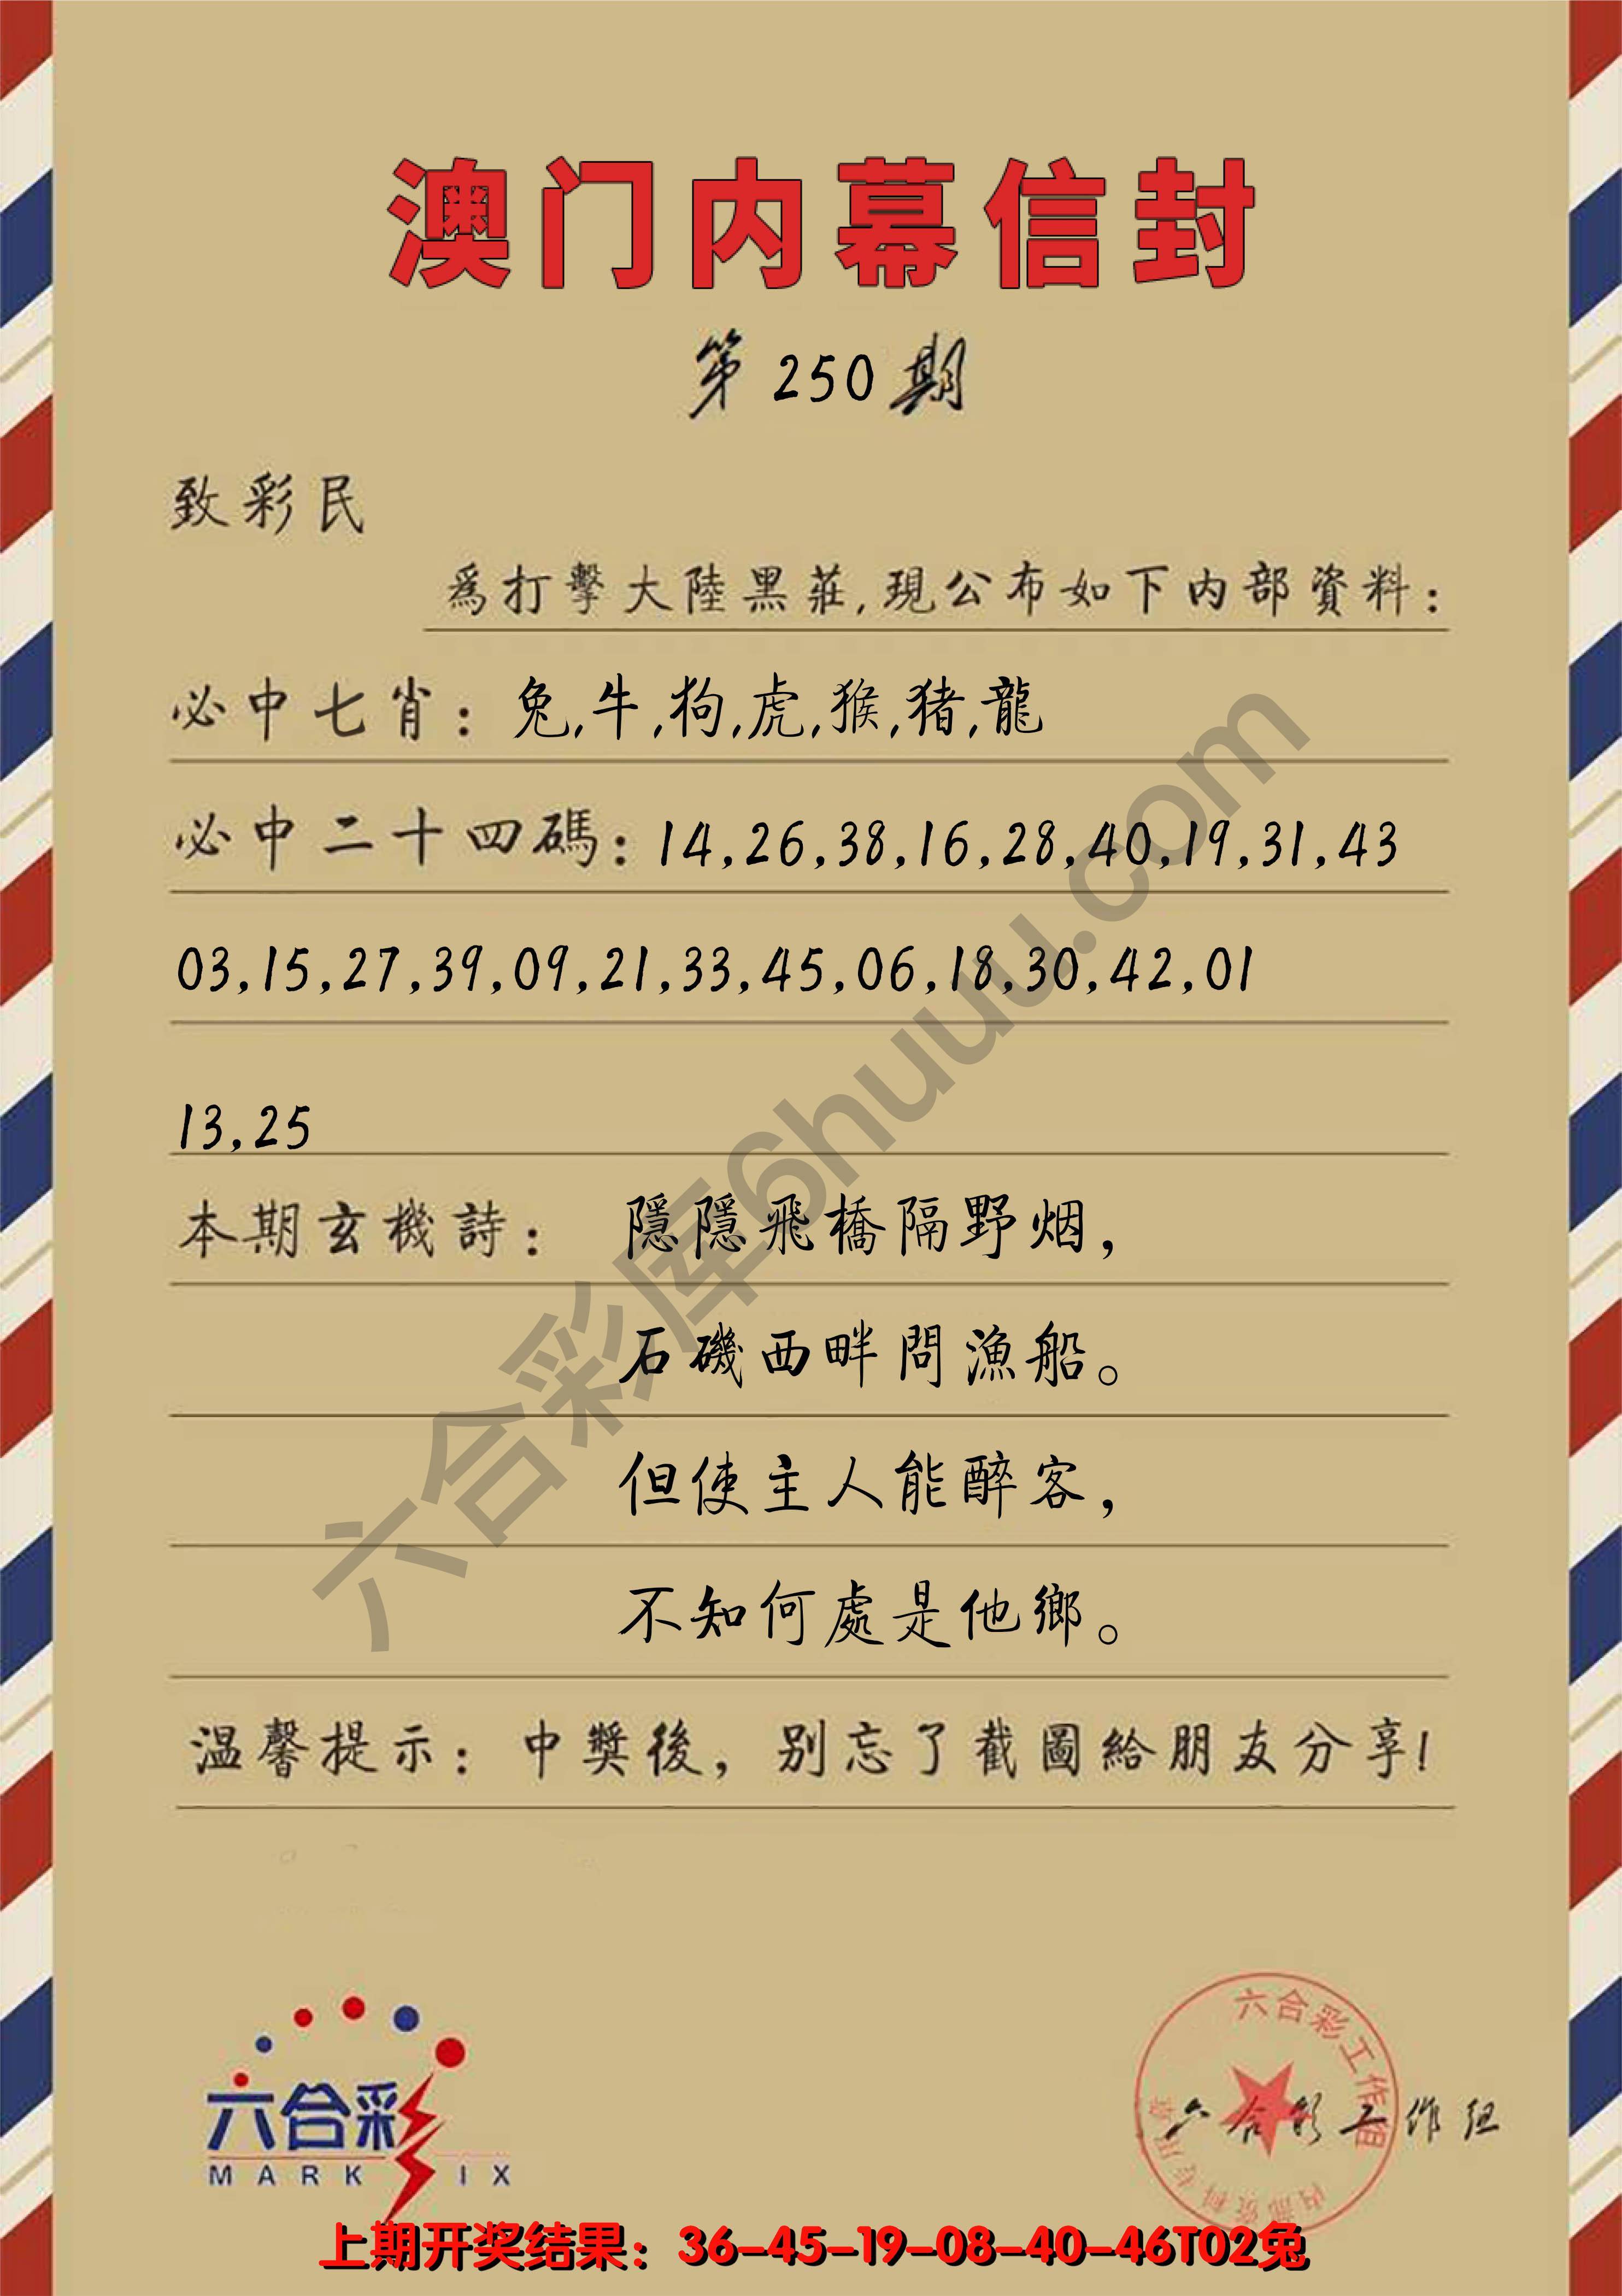 澳门内幕信封
第250期
致彩民
爲打擊大陸黑莊,現公布如下内部資料:
必中七肖: 兔,牛,狗,虎,猴,猪,龍
必中二十四碼: 14,26,38,16,28,40,19,31,43
03,15,27,39,09,21,33,45,06,18,30,42,01
13,25
本期玄機詩: 隱隱飛橋隔野烟,
石磯西畔問漁船。
但使主人能醉客,
不知何處是他鄉。
温馨提示: 中獎後, 别忘了截圖給朋友分享!
六合彩库6huuu.com
六合彩
MARK IX
六合彩工作组
六合彩工作组
上期开奖结果: 36-45-19-08-40-46T02兔